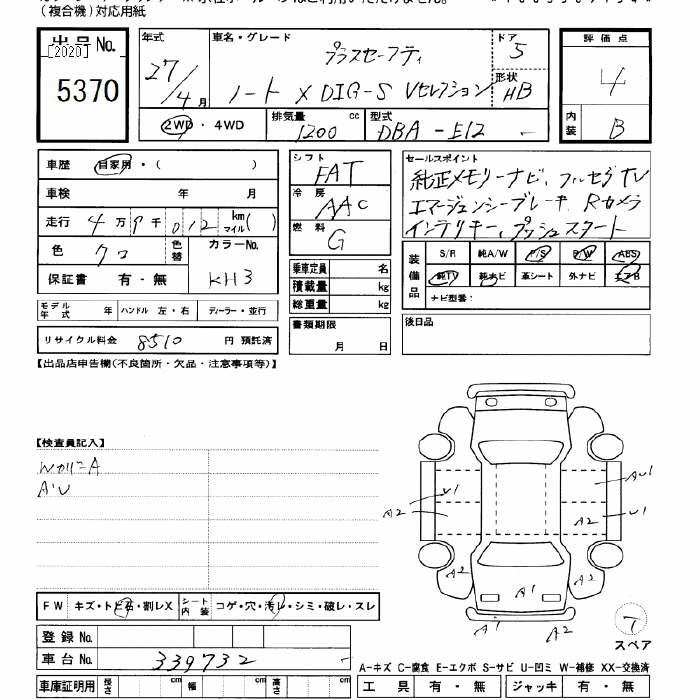 (複合機)対応用紙
出品No.
[2020]
5370
年式
27/4月
車名・グレード
プラスセーフティ
ノート X DIG-S Vセレクション
ドア
5
形状
HB
評価点
4
内装
B
2WD・4WD
排気量 1200 cc
型式 DBA-E12
車歴 自家用・( )
車検 年 月
走行 4万9千012 km マイル( )
色 クロ 色替 カラーNo.
KH3
保証書 有・無
モデル年式 年 ハンドル 左・右 ディーラー・並行
リサイクル料金 8510 円 預託済
シフト FAT
冷房 AAC
燃料 G
乗車定員 名
積載量 kg
総重量 kg
書類期限
月 日
セールスポイント
純正メモリーナビ、フルセグTV
エマージェンシーブレーキ、Rカメラ
インテリキー、プッシュスタート
装備品
S/R 純A/W P/S P/W ABS
純TV 純ナビ 革シート 外ナビ エアB
ナビ型番:
後日品
【出品店申告欄(不良箇所・欠品・注意事項等)】
【検査員記入】
A・U
FW キズ・トビ石・割レX シート内装 コゲ・穴・汚レ・シミ・破レ・スレ
登録No.
車台No. 339732
車庫証明用 長さ cm 幅 cm 高さ cm
AU1
U1
U1
A2
A2
A2
A2
A1
A2
A1
A2
7
スペア
A-キズ C-腐食 E-エクボ S-サビ U-凹ミ W-補修 XX-交換済
工具 有・無 ジャッキ 有・無